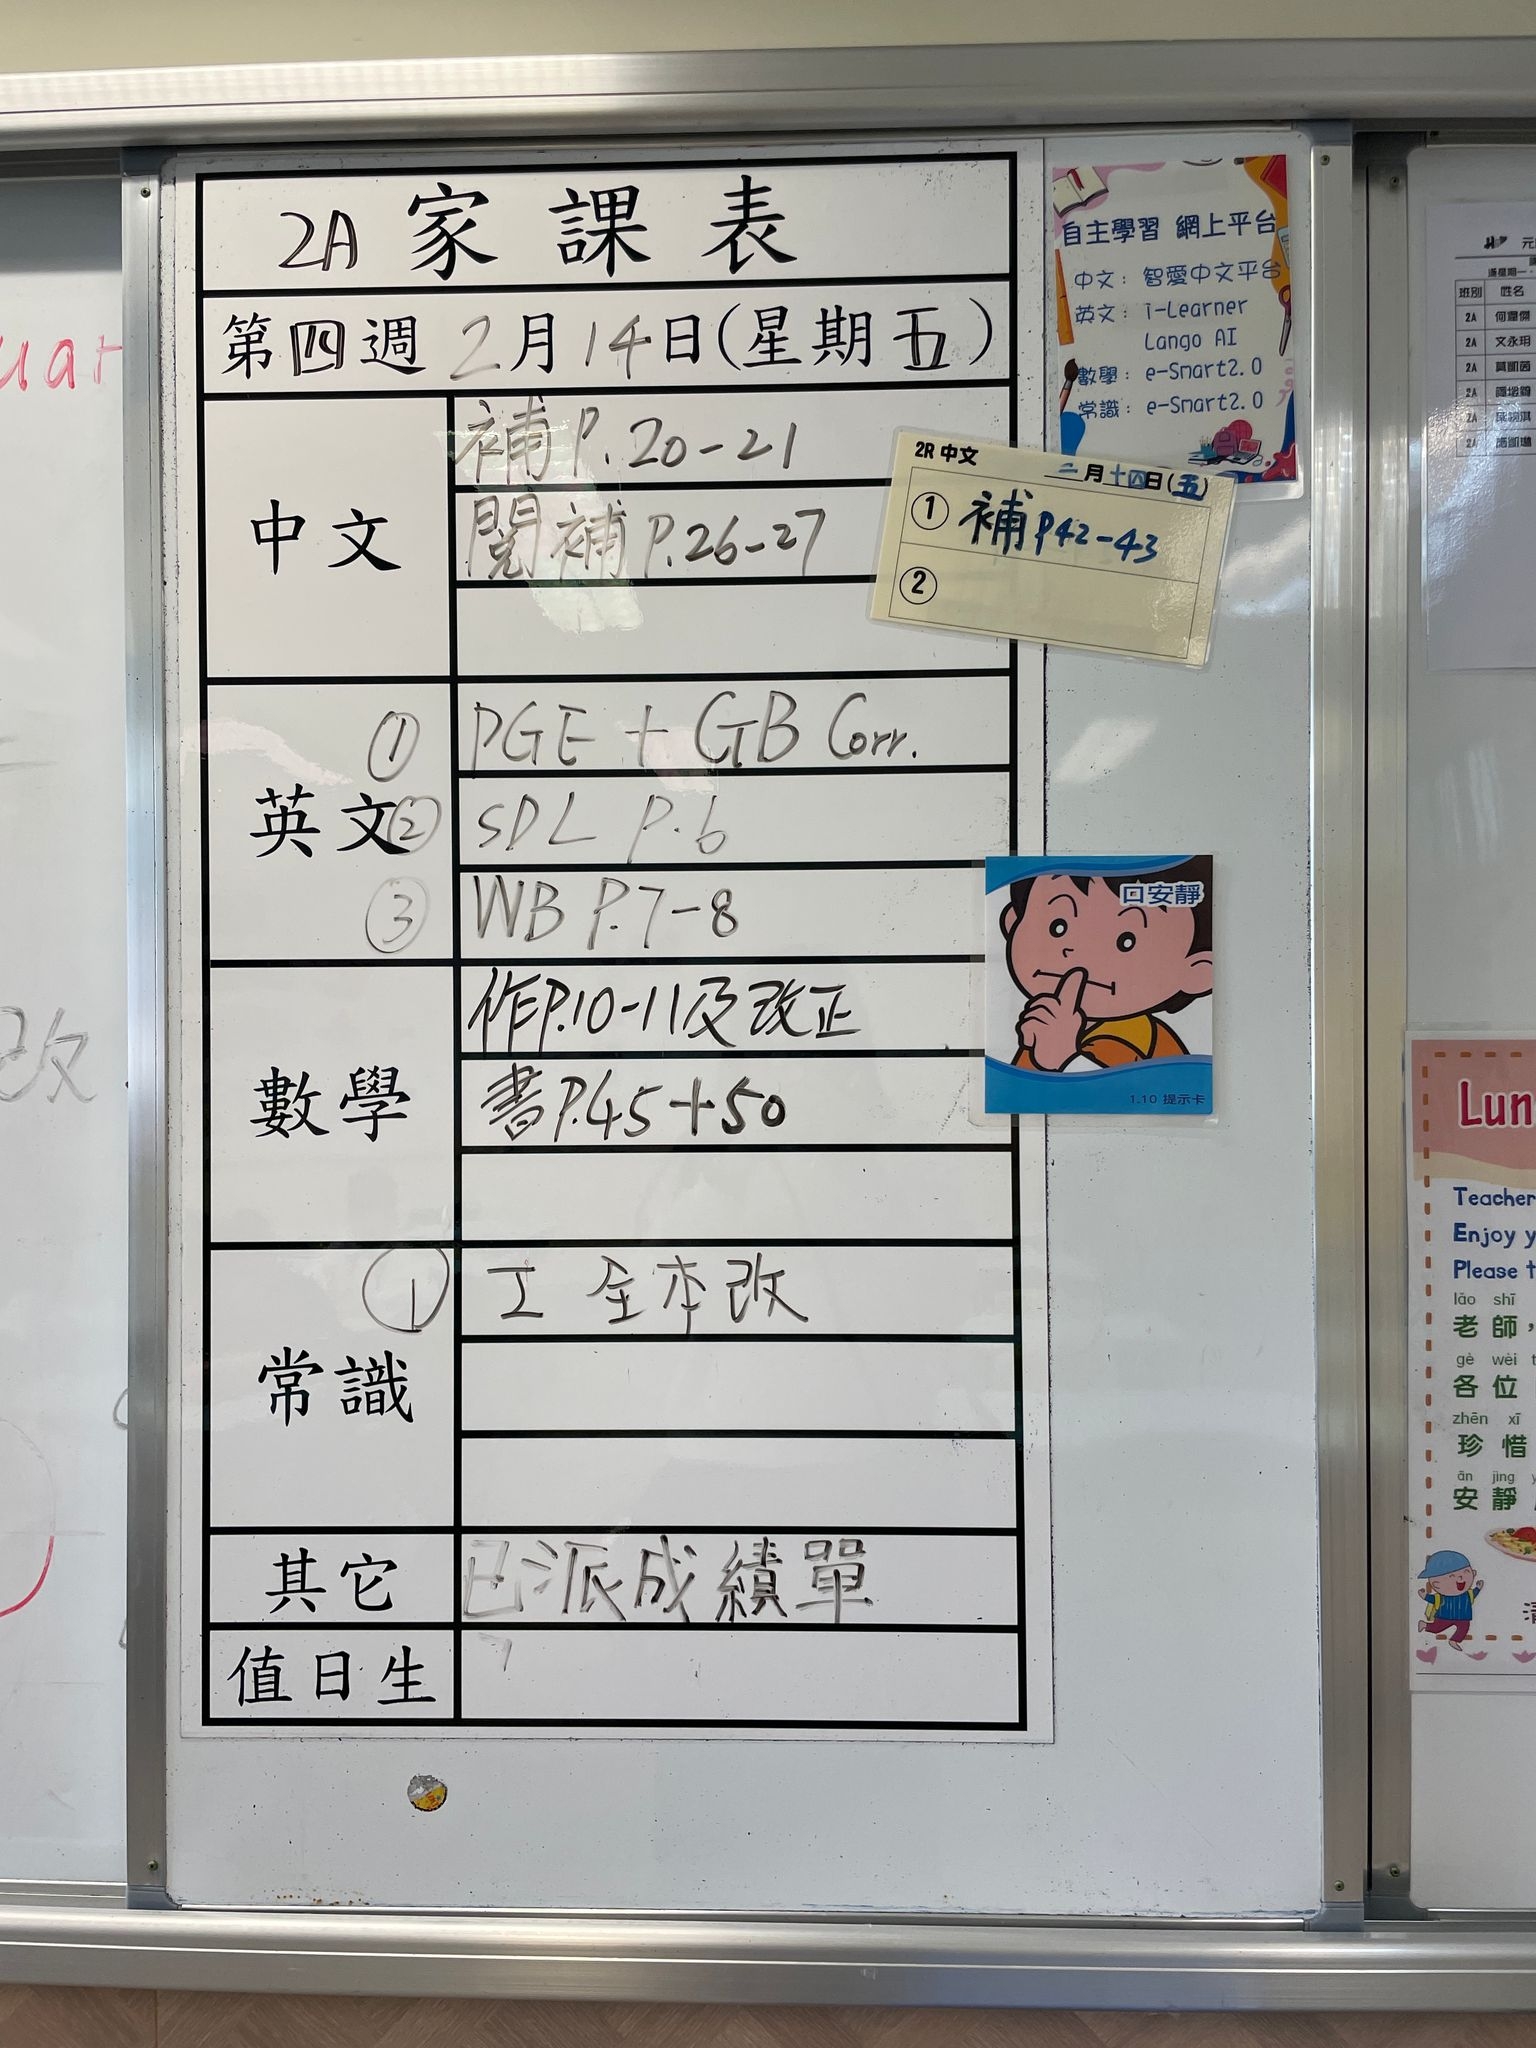 2A 家課表
第四週 2月14日(星期五)
中文
補 P.20-21
閱補 P.26-27
英文
① PGE + GB Corr.
② SDL P.6
③ WB P.7-8
數學
作P.10-11及改正
書P.45+50
常識
① 工 全本改
其它
已派成績單
值日生
自主學習 網上平台
中文: 智愛中文平台
英文: i-Learner
Lango AI
數學: e-Smart2.0
常識: e-Smart2.0
2R 中文
二月十四日(五)
① 補 P42-43
②
口安靜
1.10 提示卡
uar
改
元
班別 姓名
2A
2A 文永玥
2A
2A
2A
2A
Lun
Teacher
Enjoy y
Please t
lǎo shī
老師，
gè wèi t
各位
zhēn xī
珍惜
ān jìng y
安靜